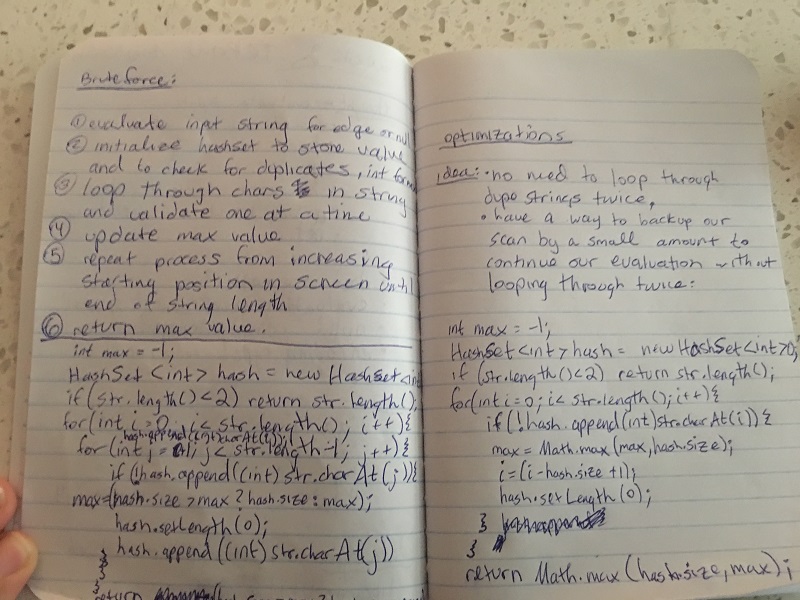 Bruteforce:
① evaluate input string for edge or null
② initialize hashset to store value
and to check for duplicates, int for
③ loop through chars in string
and validate one at a time
④ update max value
⑤ repeat process from increasing
starting position in screen until
end of string length
⑥ return max value.
int max = -1;
HashSet <int> hash = new HashSet <in
if (str.length() < 2) return str.length();
for(int i = 0; i < str.length(); i++){
hash.append((int)str.charAt(i));
for(int j = i+1; j < str.length-1; j++){
if (!hash.append((int) str.charAt(j)){
max = (hash.size > max ? hash.size : max);
hash.setLength(0);
hash.append((int)str.charAt(j))
}
}
return
optimizations
idea: • no need to loop through
dupe strings twice,
• have a way to backup our
scan by a small amount to
continue our evaluation without
looping through twice:
int max = -1;
HashSet <int> hash = new HashSet <int>();
if (str.length() < 2) return str.length();
for(int i = 0; i < str.length(); i++){
if (!hash.append(int)str.charAt(i)){
max = Math.max (max, hash.size);
i = (i - hash.size + 1);
hash.setLength(0);
}
}
return Math.max (hash.size, max);